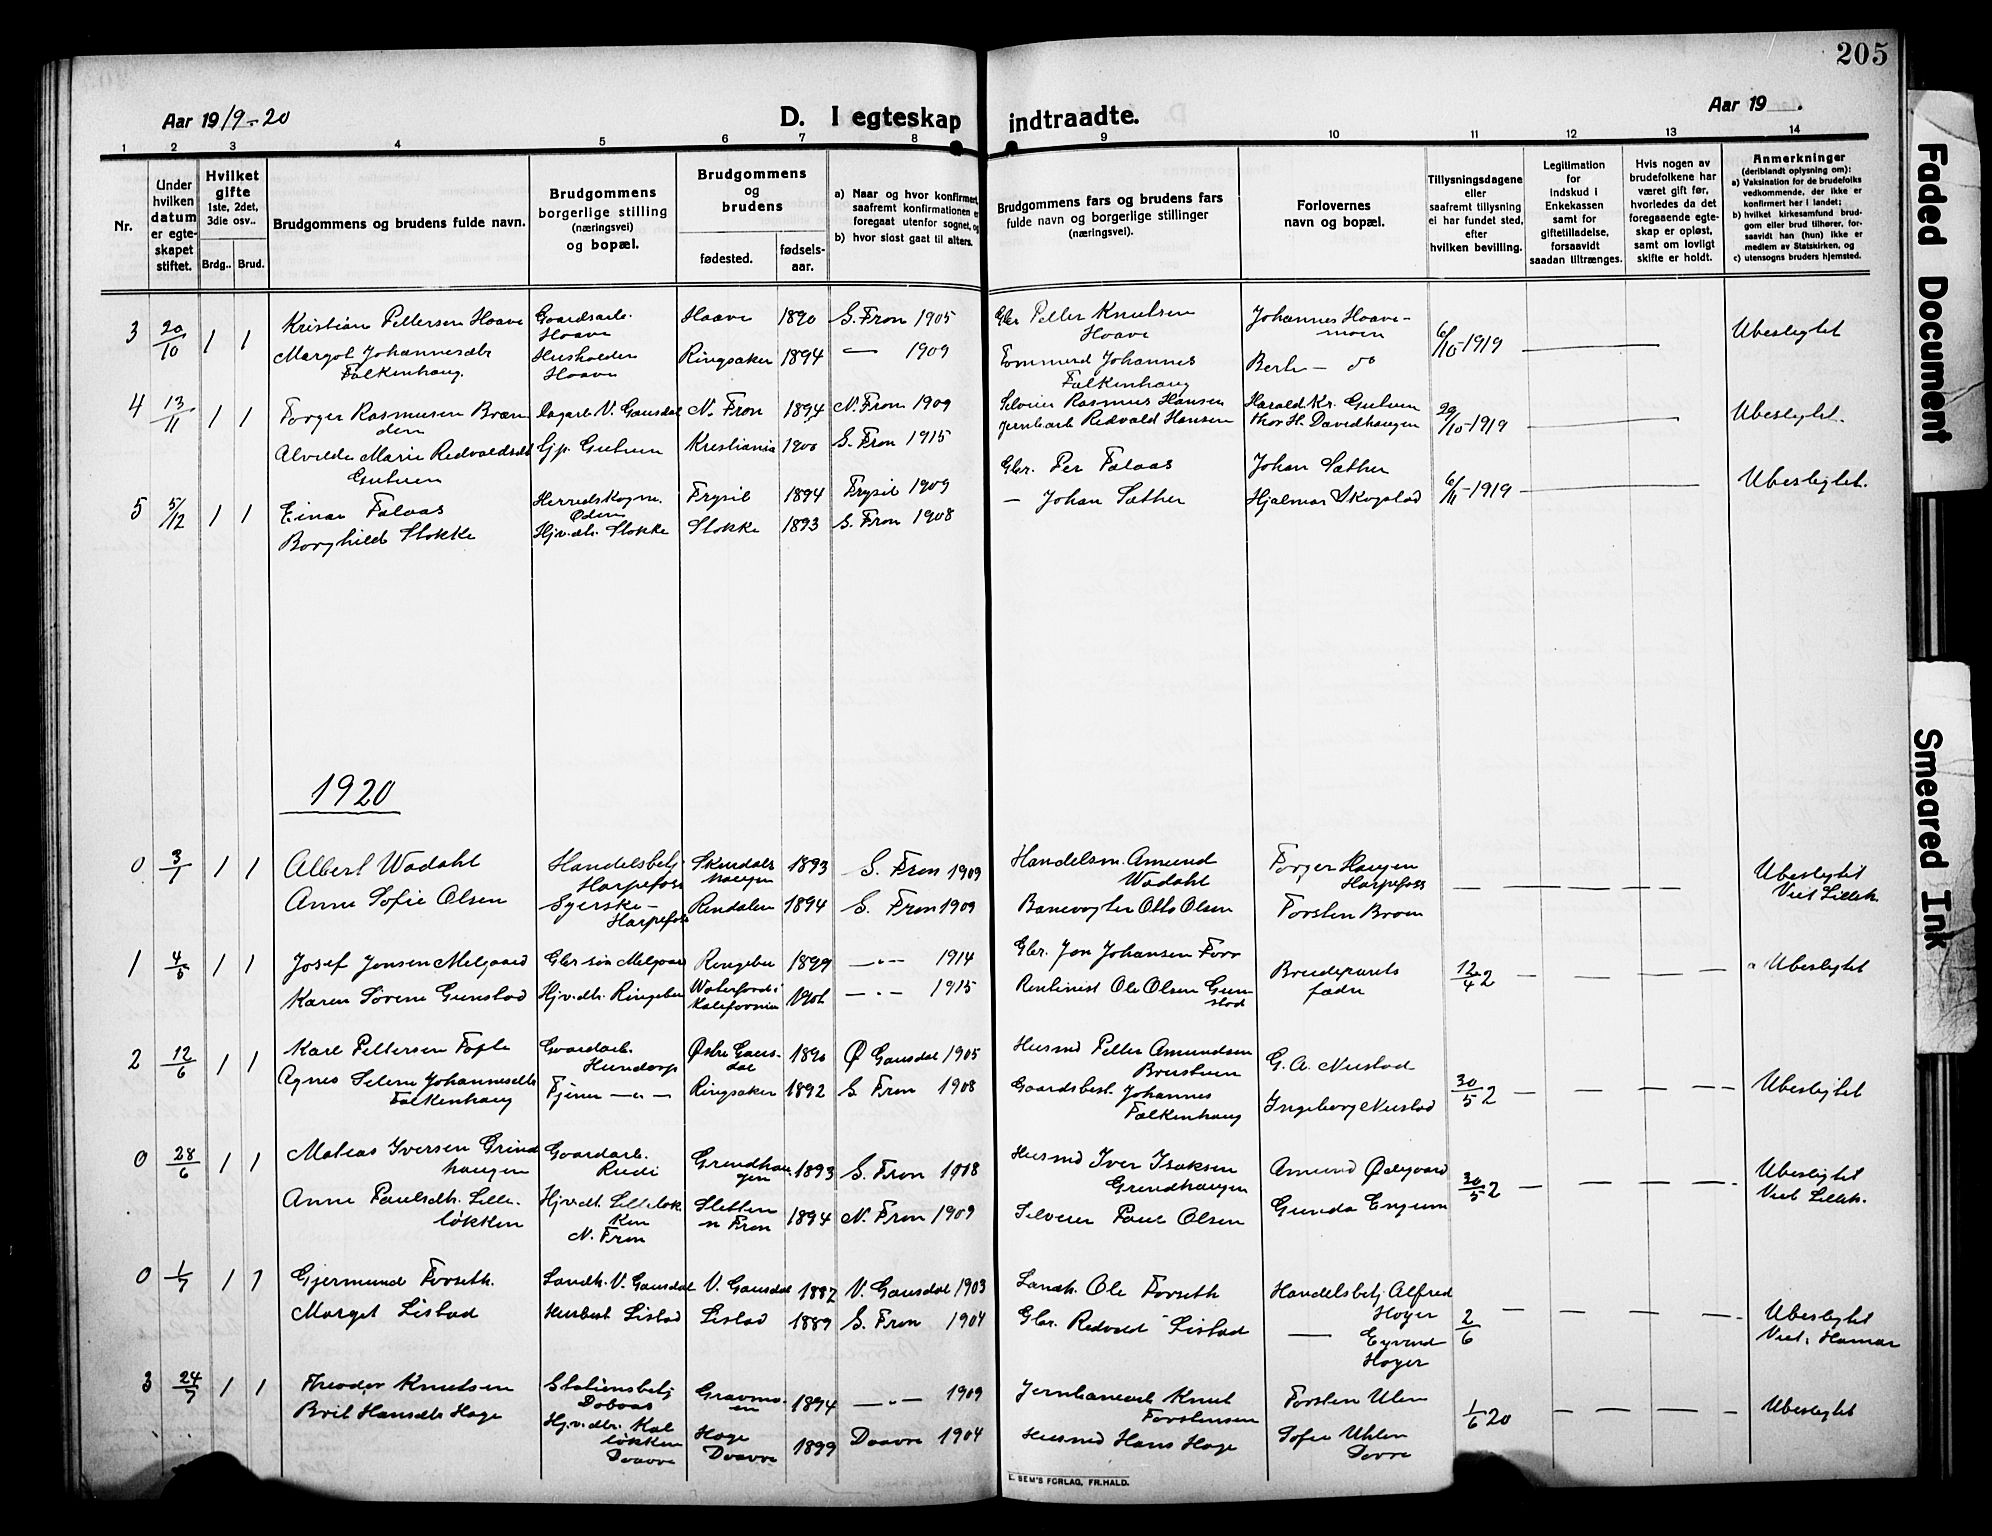 205
Aar 1919-20
D. I egteskap indtraadte.
Aar 19 .
1 2 3 4 5 6 7 8 9 10 11 12 13 14
Nr.
Under hvilken datum er egteskapet stiftet.
Hvilket gifte 1ste, 2det, 3die osv..
Brdg.. Brud.
Brudgommens og brudens fulde navn.
Brudgommens borgerlige stilling (næringsvei) og bopæl.
Brudgommens og brudens
fødested.
fødsels-aar.
a) Naar og hvor konfirmert, saafremt konfirmationen er foregaat utenfor sognet, og
b) hvor sidst gaat til alters.
Brudgommens fars og brudens fars fulde navn og borgerlige stillinger (næringsvei).
Forlovernes navn og bopæl.
Tillysningsdagene eller saafremt tillysning ei har fundet sted, efter hvilken bevilling.
Legitimation for indskud i Enkekassen samt for giftetilladelse, forsaavidt saadan tiltrænges.
Hvis nogen av brudefolkene har været gift før, hvorledes da det foregaaende egteskap er opløst, samt om lovligt skifte er holdt.
Anmerkninger (deriblandt oplysning om):
a) Vaksination for de brudefolks vedkommende, der ikke er konfirmert her i landet;
b) hvilket kirkesamfund brudgom eller brud tilhører, forsaavidt han (hun) ikke er medlem av Statskirken, og
c) utensogns bruders hjemsted.
3 20/10 1 1 Kristian Pettersen Haave Gaardsarb. Haave Haave 1890 S. Fron 1905 Gbr Petter Knutsen Haave Johannes Haavemoen 6/10-1919 Ubeslegtet
Margot Johannesdtr Falkenhaug. Husholder Haave Ringsaker 1894 — 1909 Tømmerm Johannes Falkenhaug Berte — do
4 13/11 1 1 Torger Rasmusen Brænden Dagarb. V. Gausdal N. Fron 1894 N. Fron 1909 Selveier Rasmus Hansen Harald Kr. Gutuen 29/10-1919 Ubeslegtet.
Alvilde Marie Redvaldsdt Gutuen Gjp. Gutuen Kristiania 1900 S. Fron 1915 Jernbarb Redvald Hansen Thor H. Davidhaugen
5 5/12 1 1 Einar Falaas Herredskogm. Øden Trysil 1894 Trysil 1909 Gbr. Per Falaas Johan Sæther 6/11-1919 Ubeslegtet.
Borghild Slokke Hjv.dtr. Slokke Slokke 1893 S. Fron 1908 — Johan Sæther Hjalmar Skogstad
1920
0 3/1 1 1 Albert Wadahl Handelsbetj Harpefoss 1893 S. Fron 1909 Handelsm. Amund Wadahl Torger Haugen Harpefoss — — — — Ubeslegtet Viet Lilleh.
Anne Sofie Olsen Syerske - Harpefoss Rendalen 1894 S. Fron 1909 Banevogter Otto Olsen Torsten Broen
1 4/5 1 1 Josef Jonsen Melgaard Gbr søn Melgaard Ringebu 1899 —"— 1914 Gbr. Jon Johansen Forr Brudeparets fædre 12/4 2 — — — — Ubeslegtet
Karen Sørene Gunstad Hjv.dtr. Ringebu Waterford i Kalifornien 1901 —"— 1915 Rentinist Ole Olsen Gunstad
2 12/6 1 1 Karl Pettersen Tofte Gaardarb. Hundorp Østre Gausdal 1890 Ø Gausdal 1905 Husmd Petter Amundsen G. A. Neustad 30/5 2 — — — — Ubeslegtet
Agnes Selene Johannesdtr Falkenhaug Tjener —"— Ringsaker 1892 S Fron 1908 Gaardsbest. Johannes Falkenhaug Ingeborg Neustad
0 28/6 1 1 Mateas Iversen Grindhaugen Gaardarb. Rudi Grendhaugen 1893 S. Fron 1908 Husmd Iver Isaksen Grendhaugen Amund Ødegaard 30/5 2 — — — — Ubeslegtet Viet Lilleh.
Anne Paulsdtr. Lilleløkken Hjv.dt Lilleløkken N. Fron Sletten N Fron 1894 N. Fron 1909 Selveier Paul Olsen Gunda Engum
0 1/7 1 1 Gjermund Forseth. Landh. V. Gausdal V. Gausdal 1887 V. Gausdal 1903 Landh. Ole Forseth Handelsbetj. Alfred Høyer 2/6 — — — — Ubeslegtet Viet i Hamar
Marget Listad Husbest Listad Listad 1889 S. Fron 1904 Gbr. Redvald Listad — Eyvind Høyer
3 24/7 1 1 Theodor Knutsen Stationsbetj Dobaas Gravmoen 1894 —"— 1909 Jernbanearb Knut Torstensen Torsten Ulen 1/6 20 — — — — Ubeslegtet
Brit Hansdtr Hage Hjv.dtr. Kalløkken Daavre Hage Daavre 1899 Daavre 1904 Husmd Hans Hage Sofie Uhlen Dovre
E. SEM'S FORLAG, FR.HALD.
Faded Document
Smeared Ink